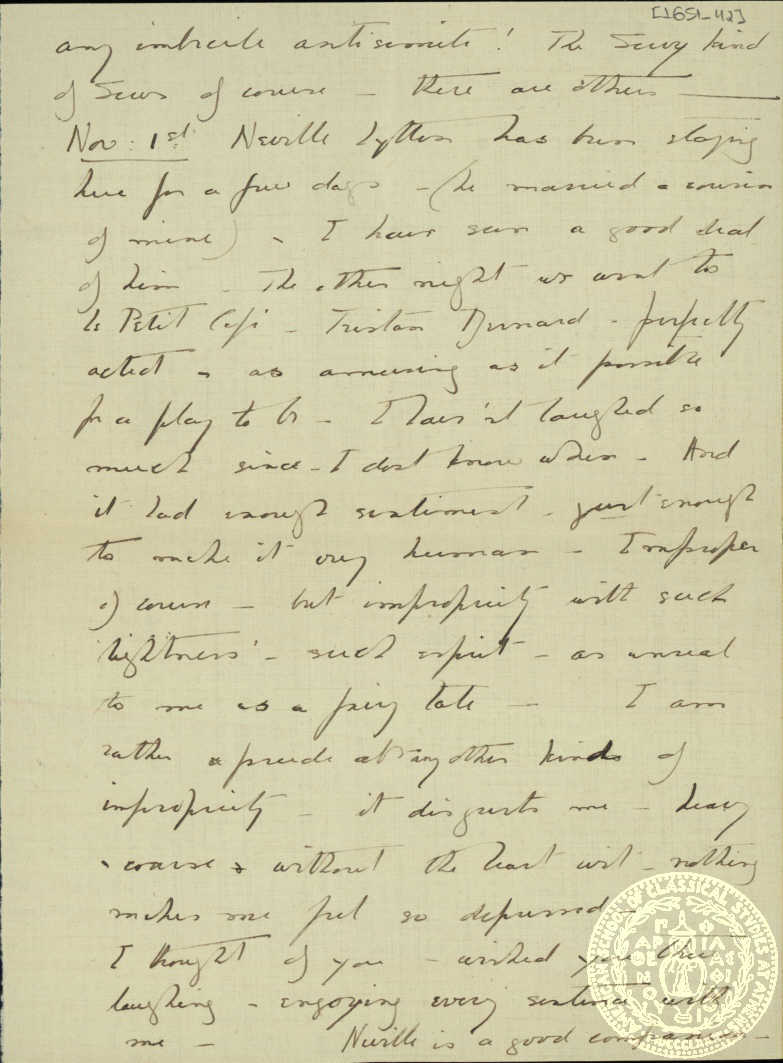 [1651-42]
any imbecile antisemite! The Jewy kind
of Jews of course – there are others —
Nov: 1st. Neville Lytton has been staying
here for a few days – (he married a cousin
of mine) & I have seen a good deal
of him – The other night we went to
le Petit Café – Tristan Bernard – perfectly
acted & as amusing as it possible
for a play to be – I haven't laughed so
much since – I dont know when – And
it had enough sentiment – just enough
to make it very human – Improper
of course – but impropriety with such
lightness – such esprit – as unreal
to me as a fairy tale — I am
rather a prude abt any other kinds of
impropriety – it disgusts me – heavy
& coarse & without the least wit – nothing
makes me feel so depressed –
I thought of you – wished you there
laughing – enjoying every sentence with
me – Neville is a good companion –
AMERICAN SCHOOL OF CLASSICAL STUDIES AT ATHENS